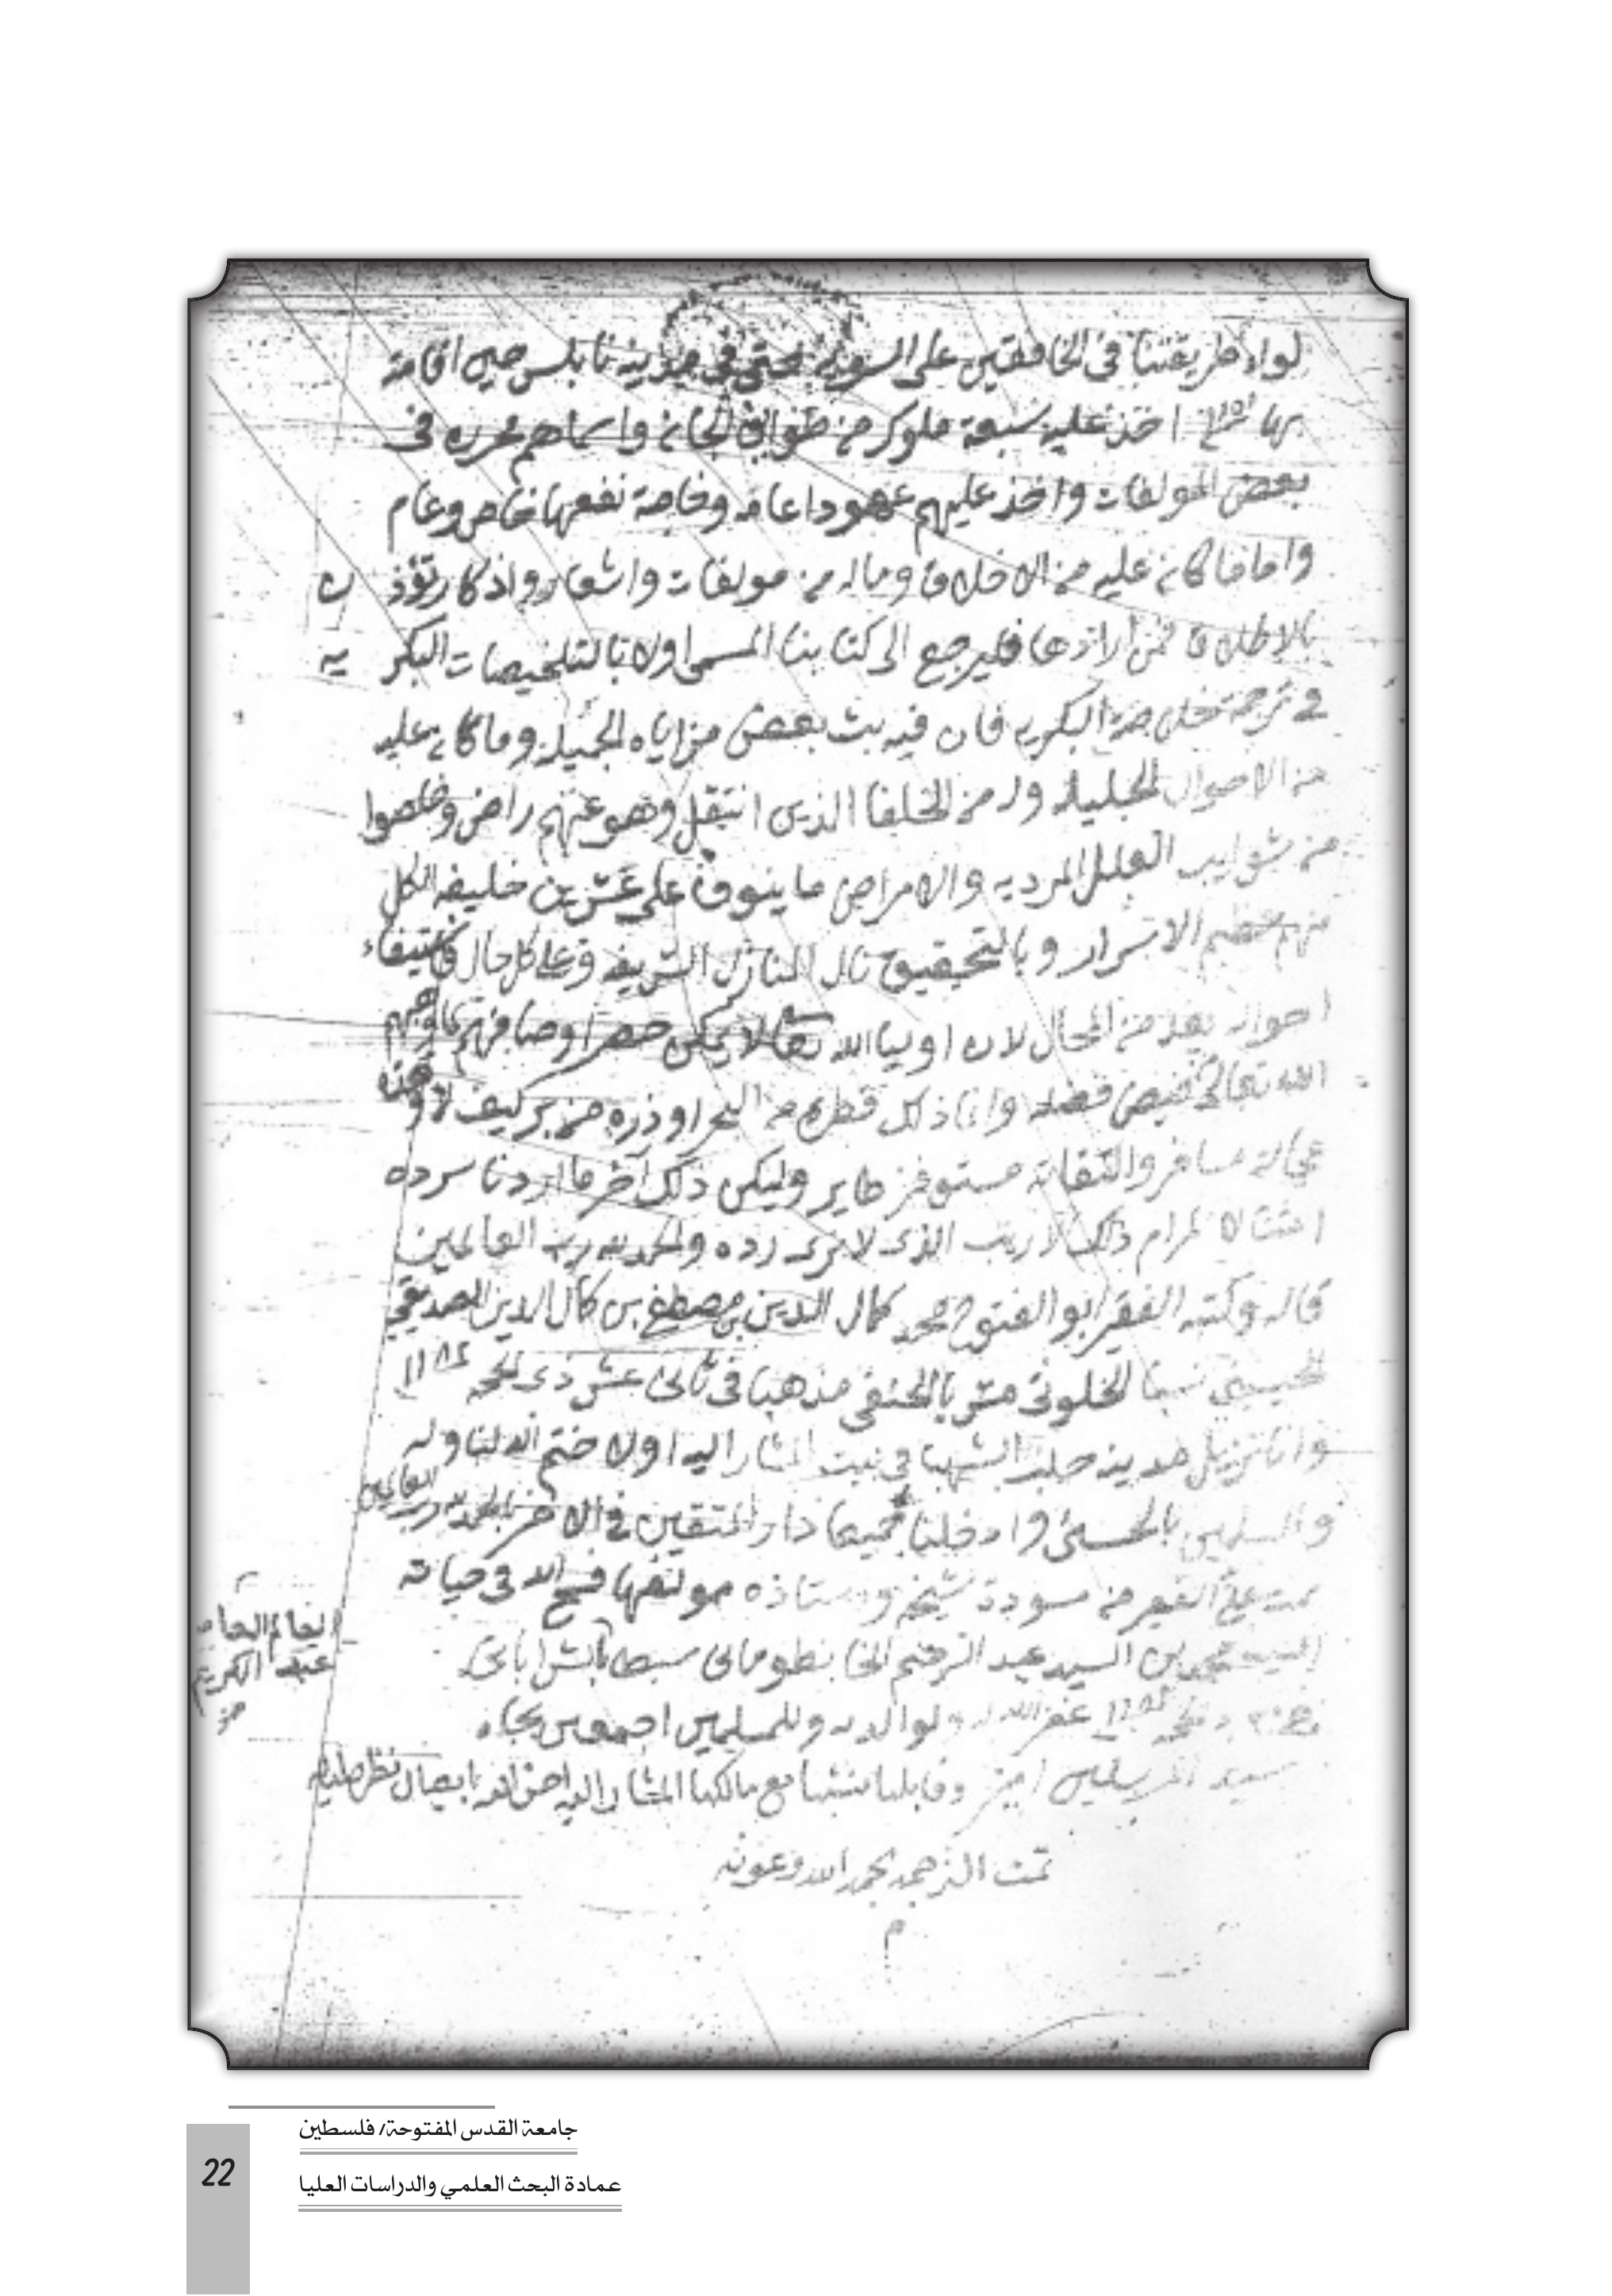 لواء طريقتنا في الخافقين على السويه حتى في مدينة نابلس حين اقامة
بها اخذ عليه سبعة ملوك من طوايف الجان واسماهم محرره في
بعض المولفات واخذ عليهم عهودا عامه وخاصة نفعها خاص وعام
واما ما كان عليه من الاخلاق وماله من مولفات واشعار واذكار تؤذن
بالاطلاق فمن ارادها فليرجع الى كتابنا المسمى اولا بالتلخيصات البكريه
في ترجمة خلاصة البكريه فان فيه بث بعض مزاياه الجميلة وما كان عليه
من الاحوال الجليله وله من الخلفا الذين انتقل وهو عنهم راض وخلصوا
من شوايب العلل المرديه والامراض ما ينوف على عشرين خليفه الكل
منهم عظيم الاسرار وبالتحقيق نال المنازل الشريفه وعلى كل حال فاستيفاء
احواله يعد من المحال لان اوليا الله تعالى لا يمكن حصر اوصافهم
الله تعالى فضله وانما ذلك قطرة من البحر او ذره من بر كيف لا وهذه
عجالة مسافر والتقاتة مستوفز طاير وليكن ذلك اخر ما اردنا سرده
امتثالا لمرام ذلك الذى لا يرى رده والحمد لله رب العالمين
قاله وكتبه الفقير ابو الفتوح محمد كمال الدين بن مصطفى بن كمال الدين الصديقي
الحسيني نسبا الخلوتي مشربا الحنفي مذهبا في ثاني عشر ذى الحجه
وانا نزيل مدينة حلب الشهبا في بيت المشار اليه اولا ختم الله لنا وله
والمسلمين بالحسنى وادخلنا جميعا دار المتقين في الاخره والحمد لله رب العالمين
تمت على الفقير من مسودة شيخه واستاذه مولفها فسح الله في حياته
السيد بن السيد عبد الرحيم سبط
غفر الله له ولوالديه وللمسلمين اجمعين بجاه
سيد المرسلين امين وقابلنا مع مالكها المشار اليه
العالم
عبد الكريم
تمت الترجمه بحمد الله وعونه
م
جامعة القدس المفتوحة/ فلسطين
22
عمادة البحث العلمي والدراسات العليا